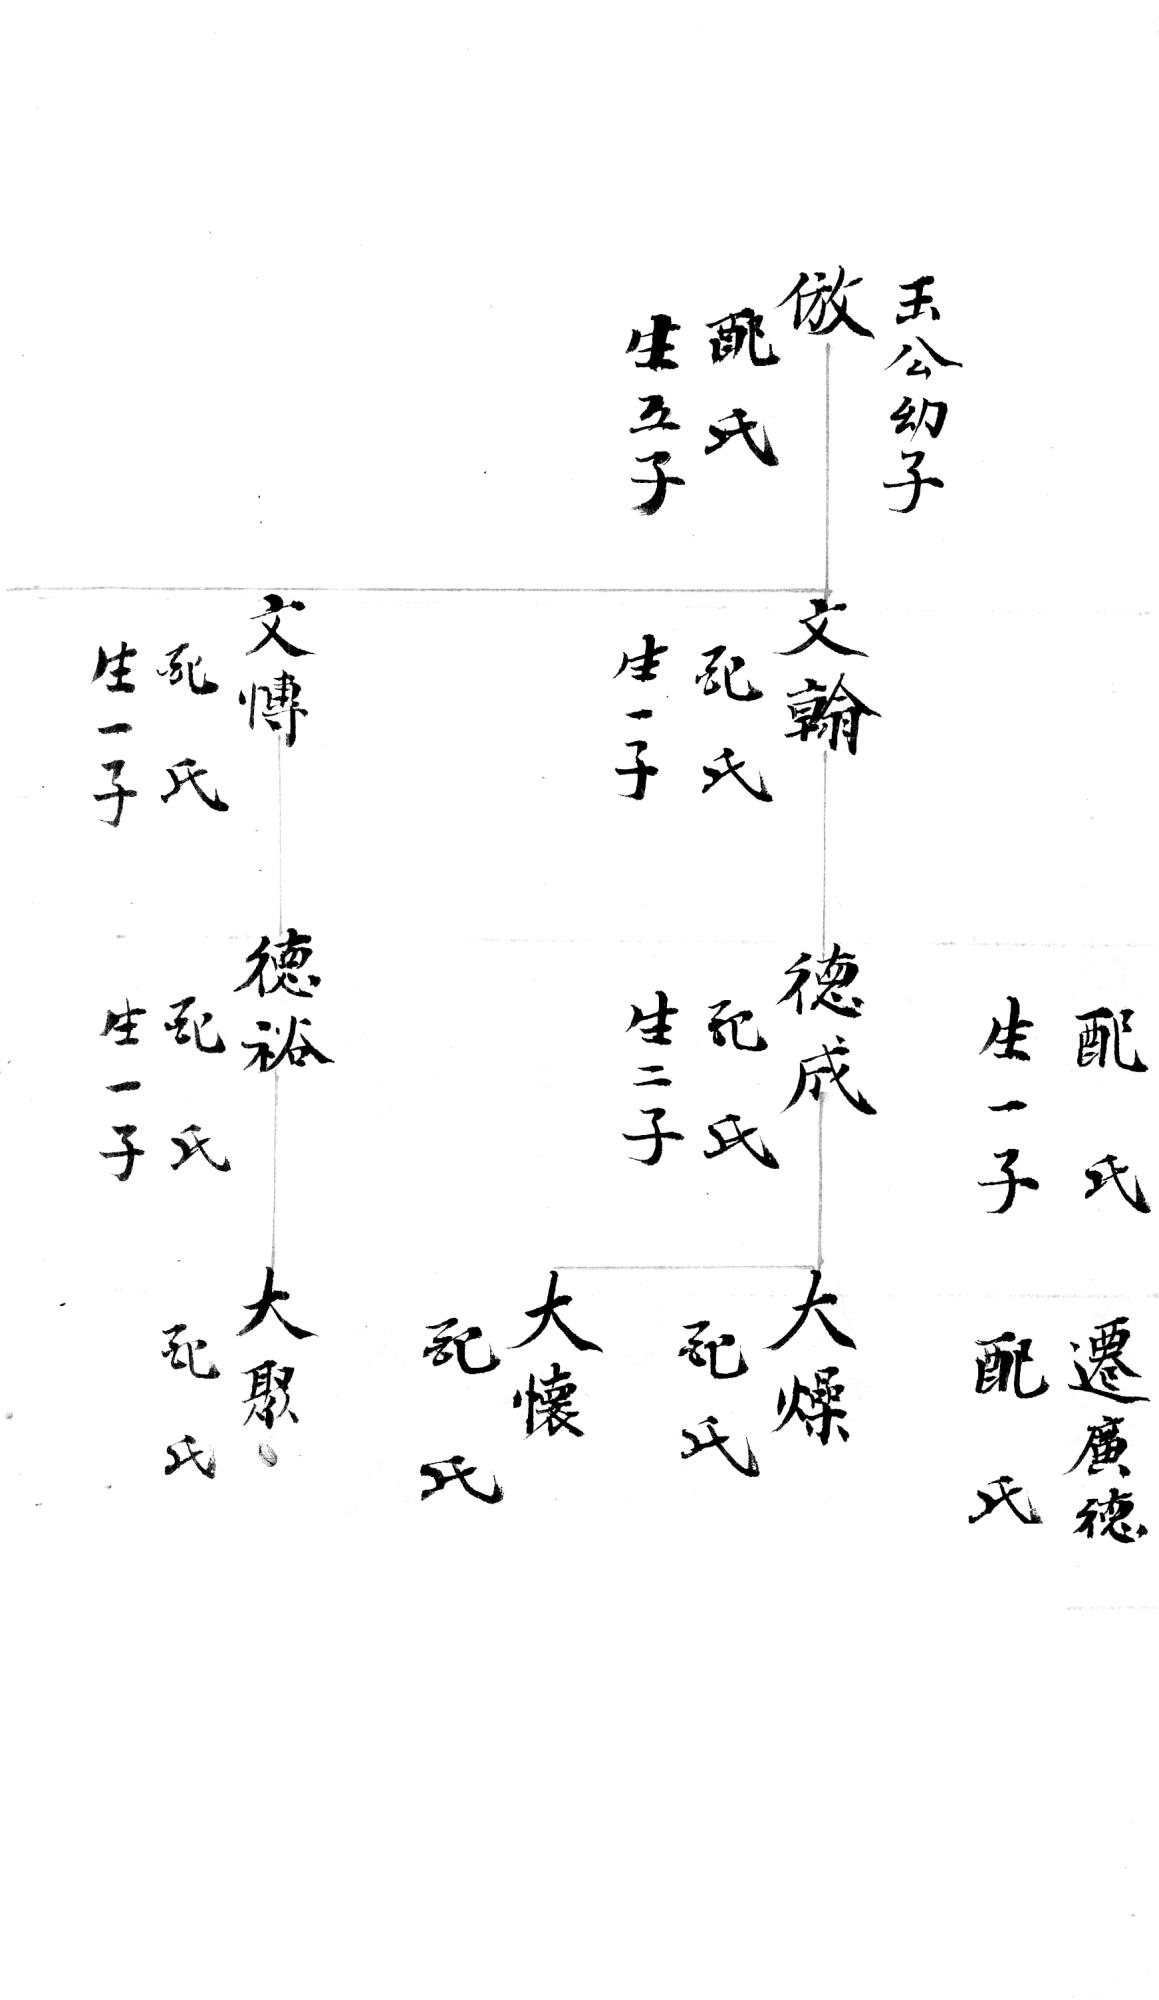 玉公幼子
倣
配氏
生五子
文翰
配氏
生一子
文博
配氏
生一子
配氏
生一子
德成
配氏
生二子
德裕
配氏
生一子
遷廣德
配氏
大燥
配氏
大懷
配氏
大聚
配氏